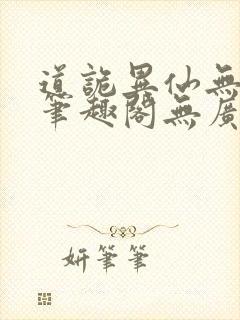 道詭異仙無
筆趣閣無廣
妍筆筆